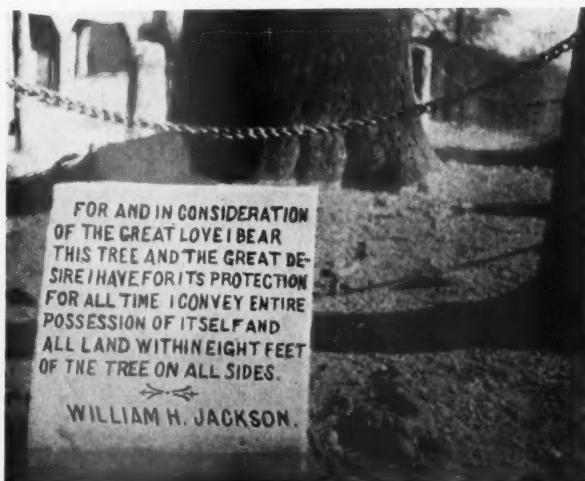 FOR AND IN CONSIDERATION
OF THE GREAT LOVE I BEAR
THIS TREE AND THE GREAT DE-
SIRE I HAVE FOR ITS PROTECTION
FOR ALL TIME I CONVEY ENTIRE
POSSESSION OF ITSELF AND
ALL LAND WITHIN EIGHT FEET
OF THE TREE ON ALL SIDES.
WILLIAM H. JACKSON.